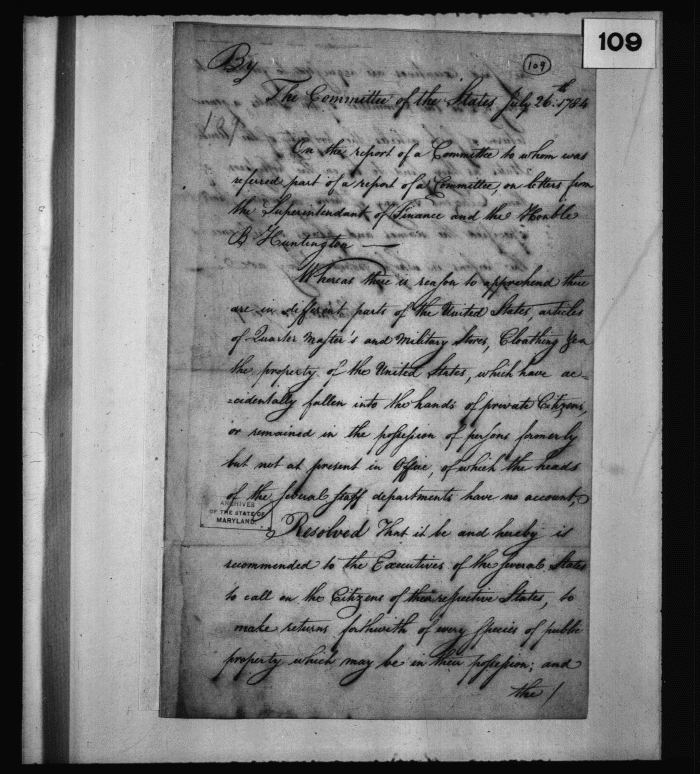 109
109
By
The Committee of the States July 26th. 1784
On the report of a Committee to whom was
referred part of a report of a Committee, on letters from
the Superintendant of Finance and the Honble
B Huntington
Whereas there is reason to apprehend there
are in different parts of the United States, articles
of Quarter Master's and Military Stores, Cloathing &ca
the property of the United States, which have ac=
=cidentally fallen into the hands of private Citizens,
or remained in the possession of persons formerly
but not at present in Office, of which the heads
of the several staff departments have no account,
ARCHIVES
OF THE STATE OF
MARYLAND
Resolved That it be and hereby is
recommended to the Executives of the several States
to call on the Citizens of their respective States, to
make returns forthwith of every species of public
property which may be in their possession; and
the /